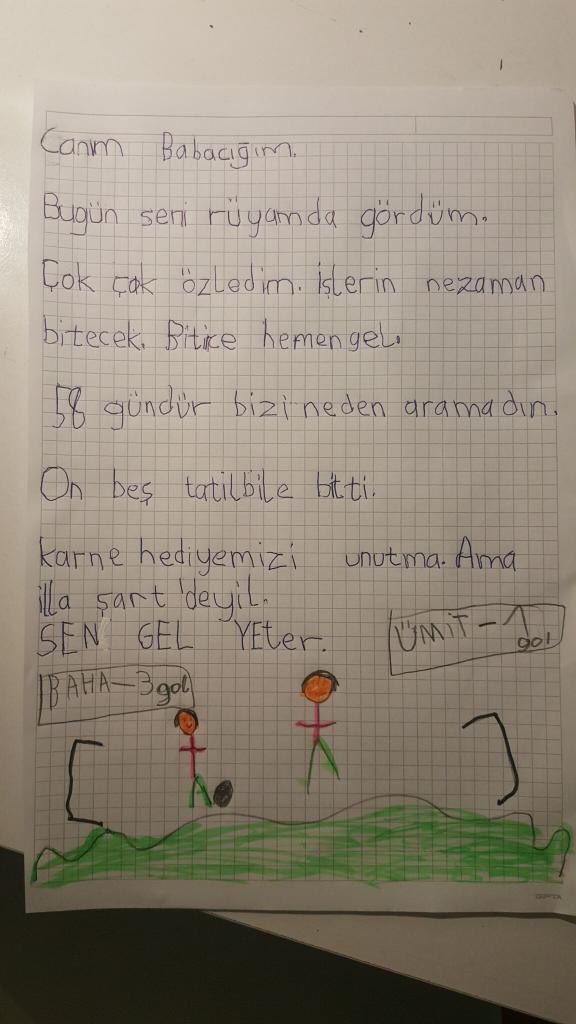 Canım Babacığım.
Bugün seni rüyamda gördüm.
Çok çak özledim. İşlerin nezaman
bitecek. Bitice hemengel.
58 gündür bizi neden aramadın.
On beş tatilbile bitti.
karne hediyemizi unutma. Ama
illa şart deyil.
SEN GEL YEter.
ÜMİT-1
gol
BAHA-3gol